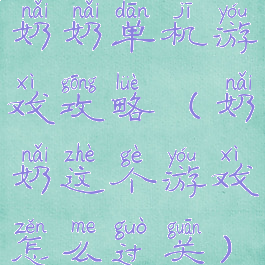 nǎi nǎi dān jī yóu
奶奶单机游
xì gōng lüè nǎi
戏攻略（奶
nǎi zhè gè yóu xì
奶这个游戏
zěn me guò guān
怎么过关）